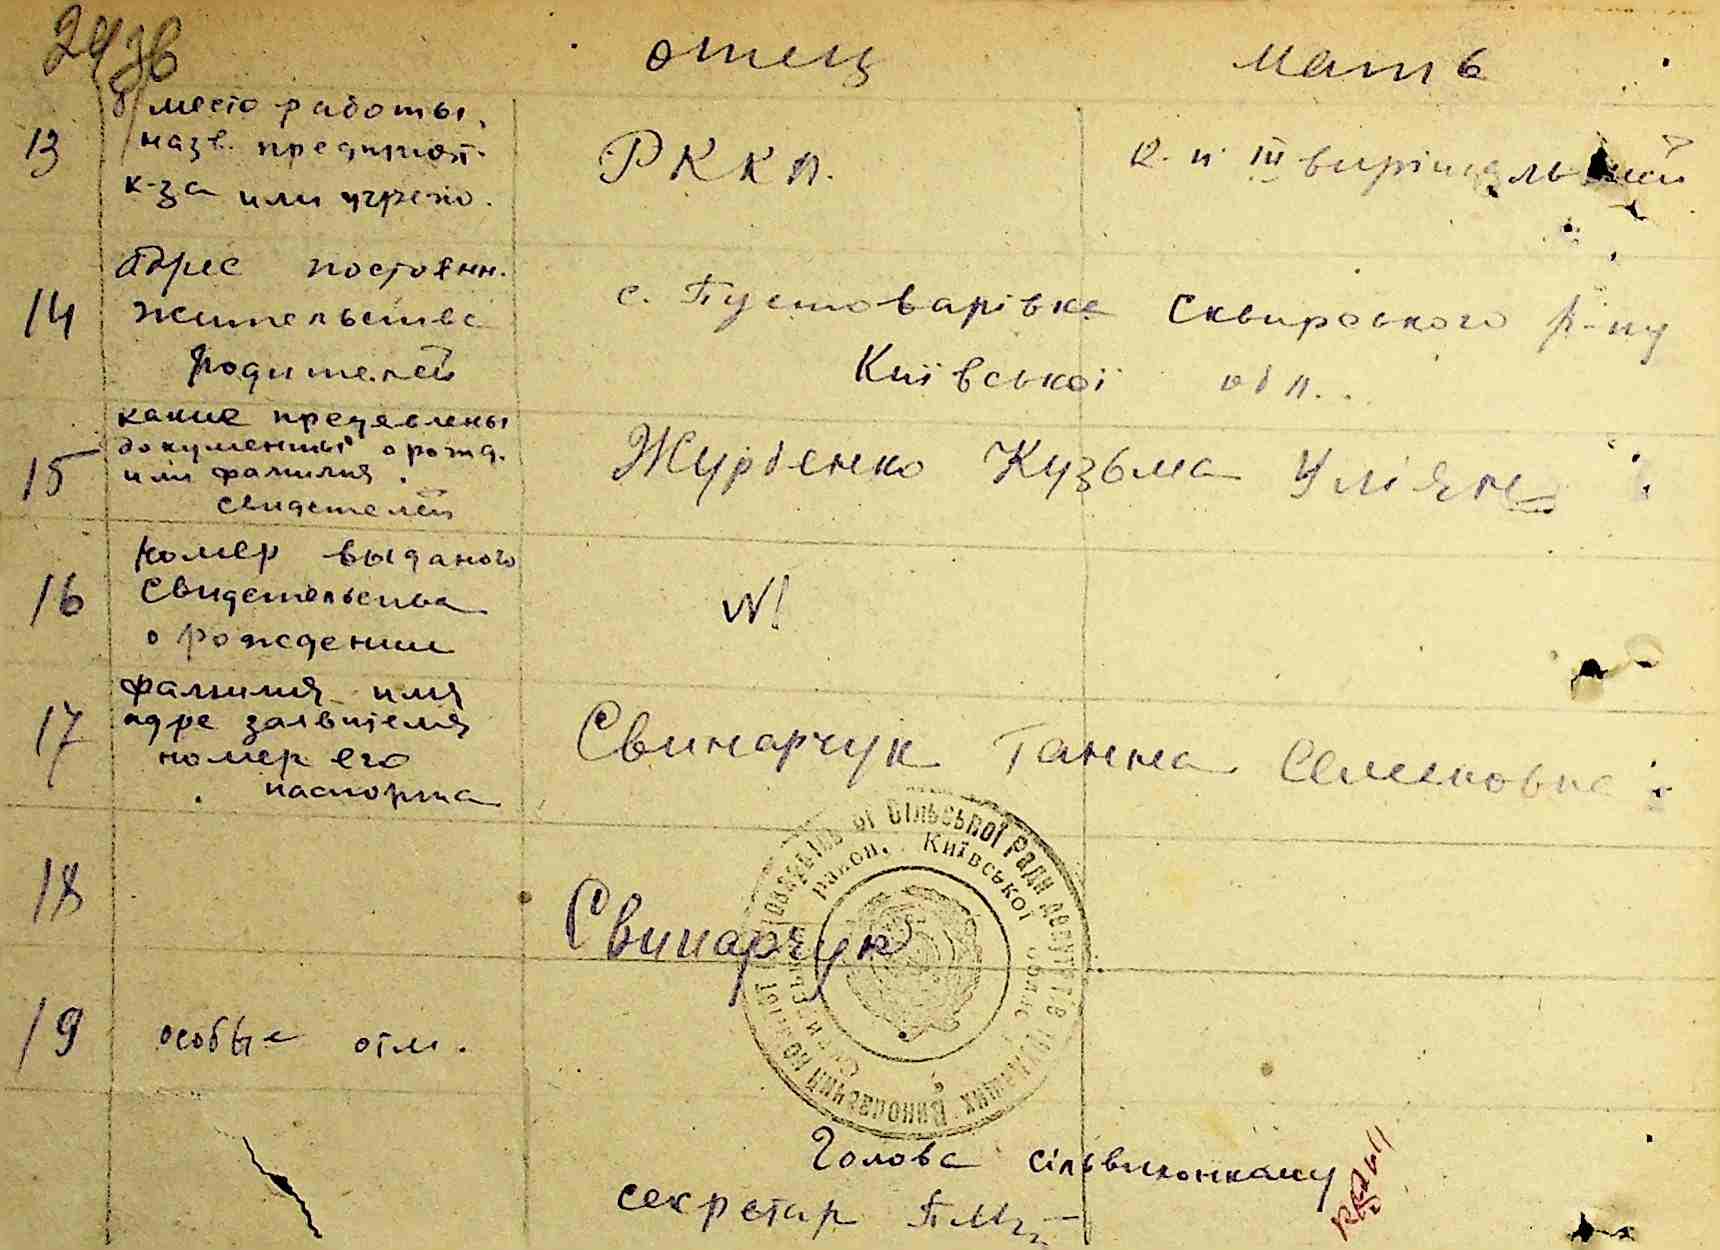 24 зв
отец мать
13 б/ место работы, назв. предприят. к-за или учрежд.
РККА.
к. п ІІІ вирішальний
14 адрес постоянн. жительства родителей
с. Пустоварівка Сквирського р-ну
Київської обл.
15 какие предявлены документы о рожд. или фамилия свидетелей
Журбенко Кузьма Уліян
16 номер выданого свидетельства о рождении
№
17 фамилия имя адре заявителя номер его паспорта
Свинарчук Ганна Семеновна
18
Свинарчук
19 особые отм.
Виконавчий комітет сільської ради депутатів трудящих
район, Київської області
Голова сільвиконкому
секретар